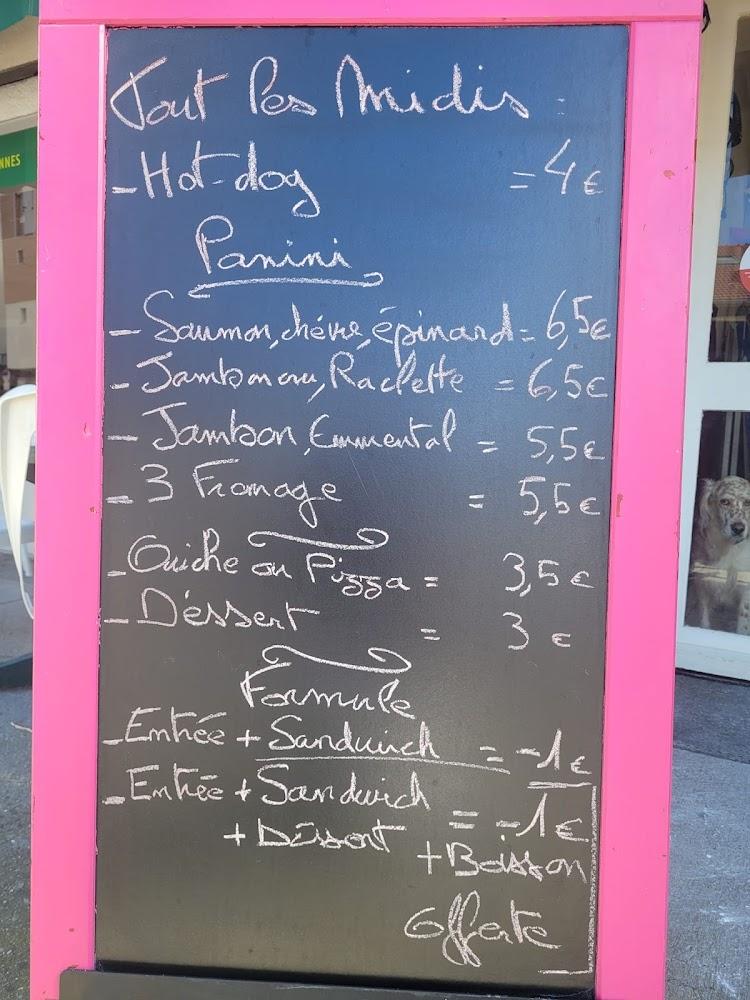 NNES
Tout les Midis :
- Hot-dog = 4 €
Panini
- Saumon, chévre, épinard = 6,5 €
- Jambon cru, Raclette = 6,5 €
- Jambon, Emmental = 5,5 €
- 3 Fromage = 5,5 €
- Quiche ou Pizza = 3,5 €
- Déssert = 3 €
Formule
- Entrée + Sandwich = -1 €
- Entrée + Sandwich = -1 €
+ Déssert + Boisson
Offerte